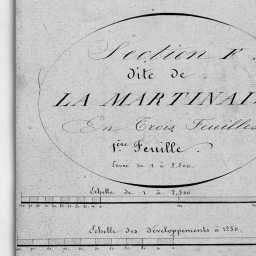 Section F.
dite de
LA MARTINAI
En Trois Feuilles
1ère Feuille.
Levée de 1 à 2,500.
Echelle de 1 à 2,500
Echelle des développements à 1250.